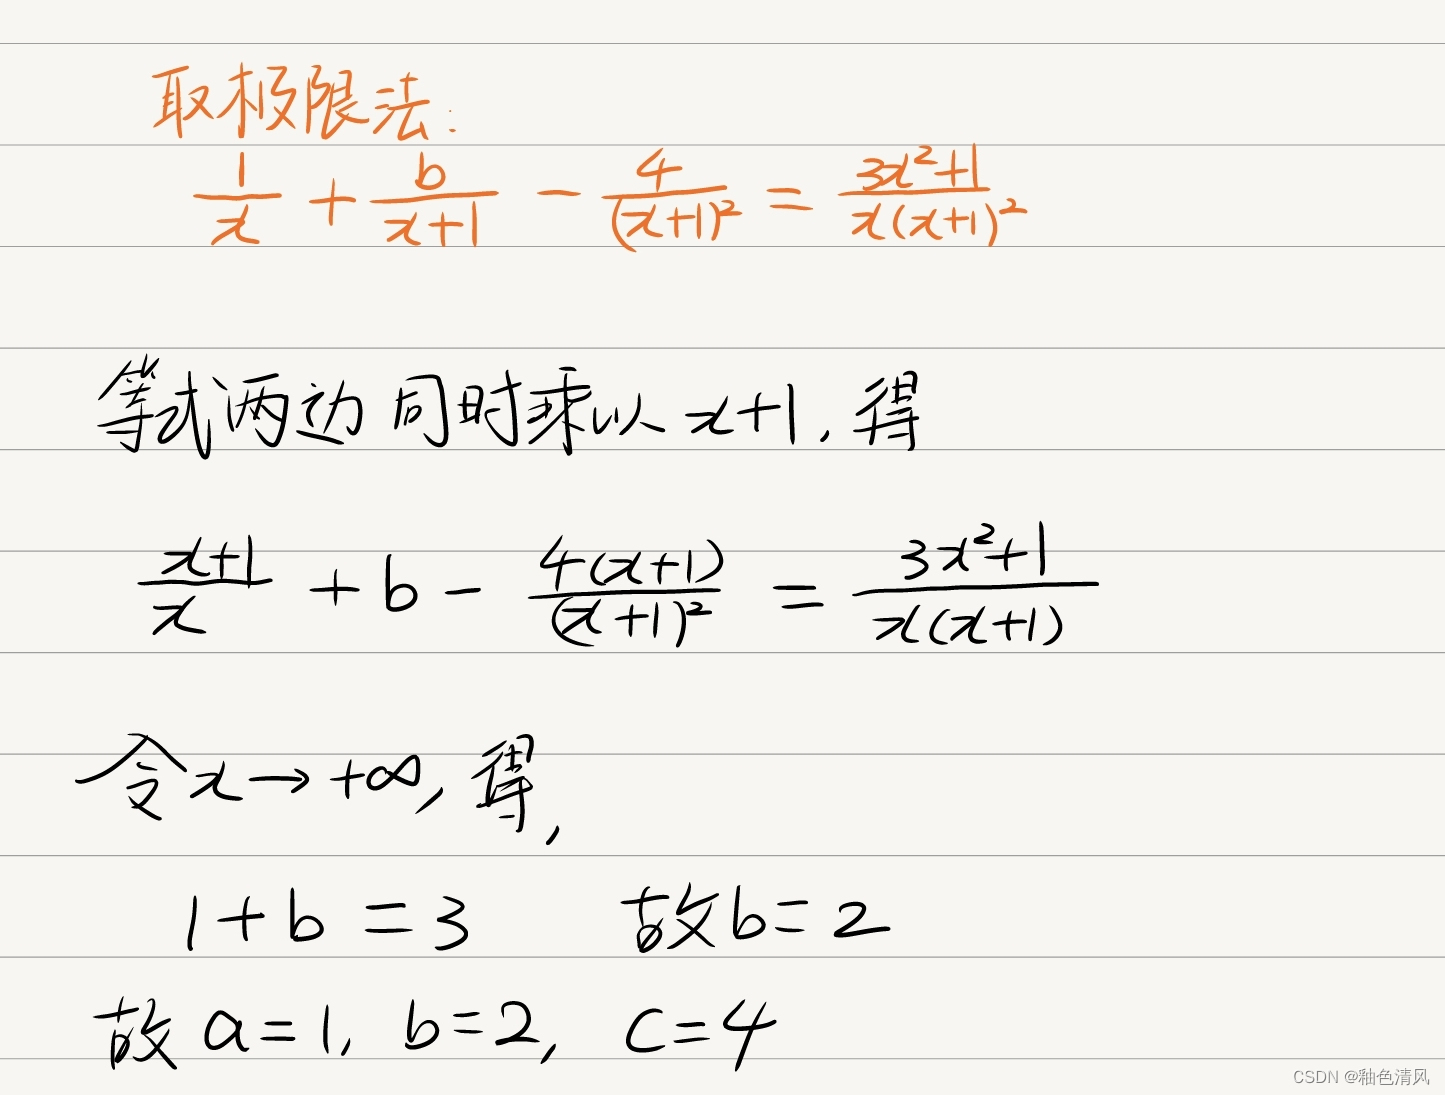 取极限法:
1/x + b/(x+1) - 4/(x+1)² = (3x²+1)/(x(x+1)²)
等式两边同时乘以 x+1, 得
(x+1)/x + b - 4(x+1)/(x+1)² = (3x²+1)/(x(x+1))
令 x→+∞, 得,
1+b=3 故b=2
故 a=1, b=2, c=4
CSDN @釉色清风